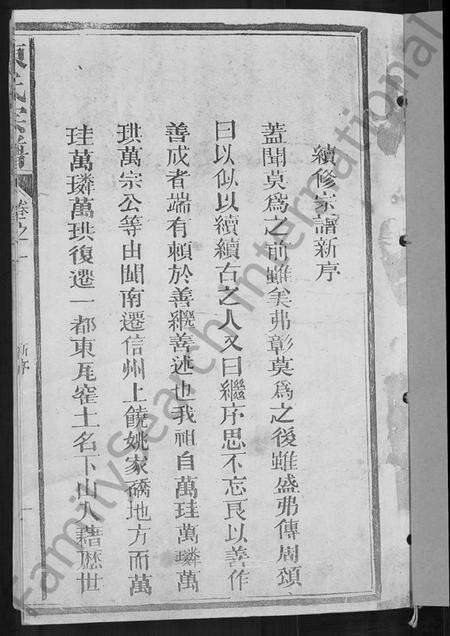 續修家譜新序
蓋聞莫為之前雖美弗彰莫為之後雖盛弗傳周頌
曰以似以續續古之人又曰繼序思不忘良以善作
善成者端有賴於善繼善述也我祖自萬珪萬璘萬
珙萬宗公等由閩南遷信州上饒姚家礄地方而萬
珪萬璘萬珙復遷一都東瓦窑土名下山入藉歷世
氏宗譜
卷之一
新序
FamilySearch International